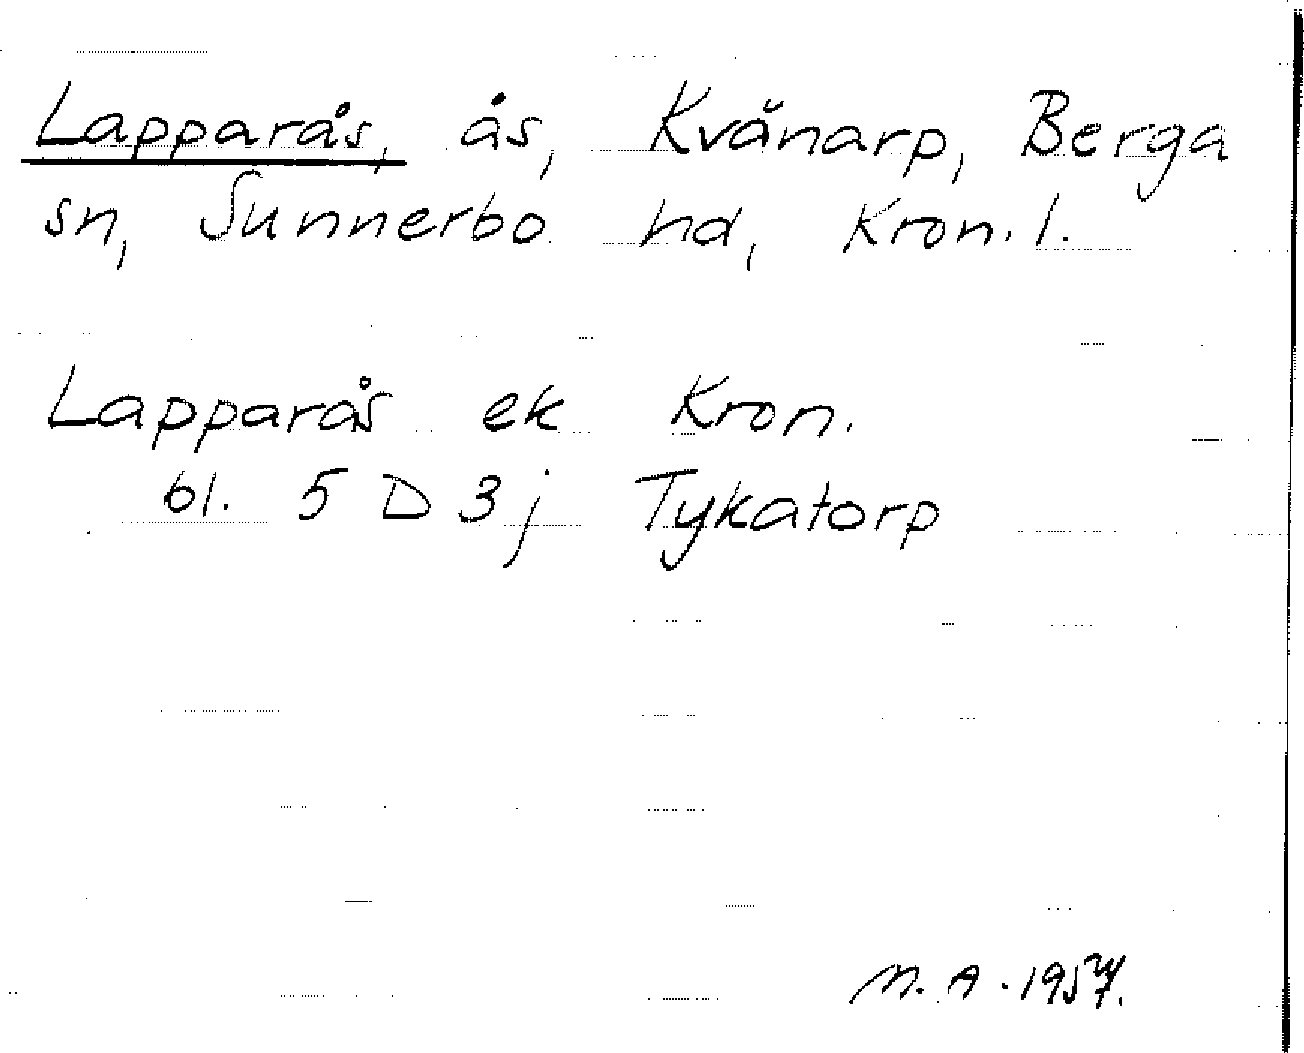 Lapparås, ås, Kvänarp, Berga
sn, Sunnerbo hd, Kron. l.
Lapparås ek Kron.
bl. 5 D 3 j Tykatorp
M. A. 1957.